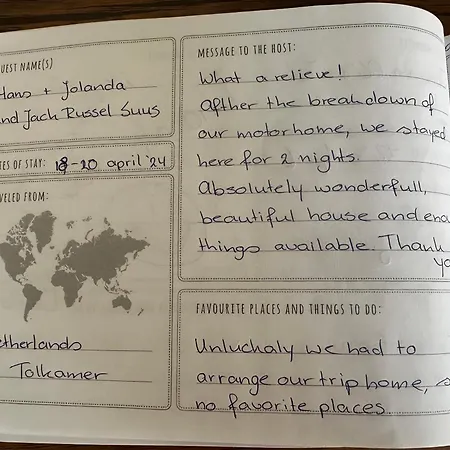 UEST NAME(S)
Hans + Jolanda
nd Jack Russel Suus
TES OF STAY: 18-20 april '24
VELED FROM:
etherlands
Tolkamer
MESSAGE TO THE HOST:
What a relieve!
Afther the breakdown of
our motorhome, we stayed
here for 2 nights.
Absolutely wonderfull,
beautiful house and eno
things available. Thank
yo
FAVOURITE PLACES AND THINGS TO DO:
Unluchaly we had to
arrange our trip home, s
no favorite places.